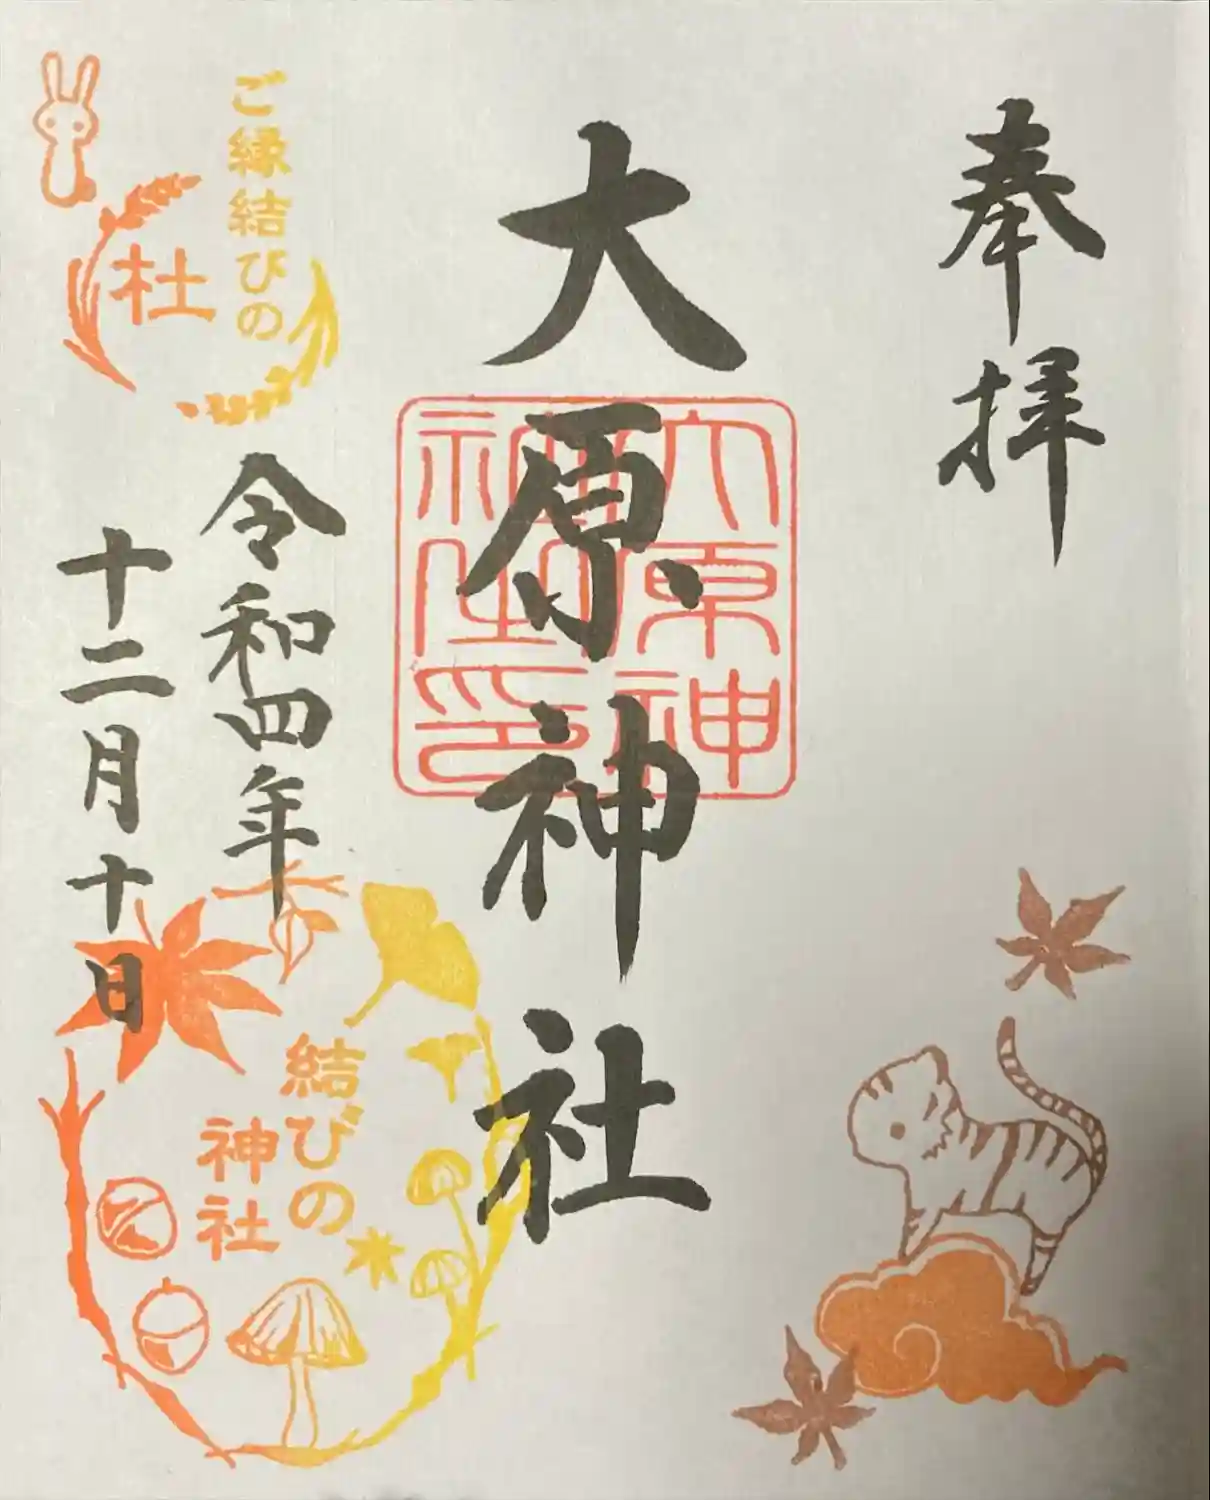 奉拝
大原神社
大原神
社之印
ご縁結びの
杜
令和四年
十二月十日
結びの
神社